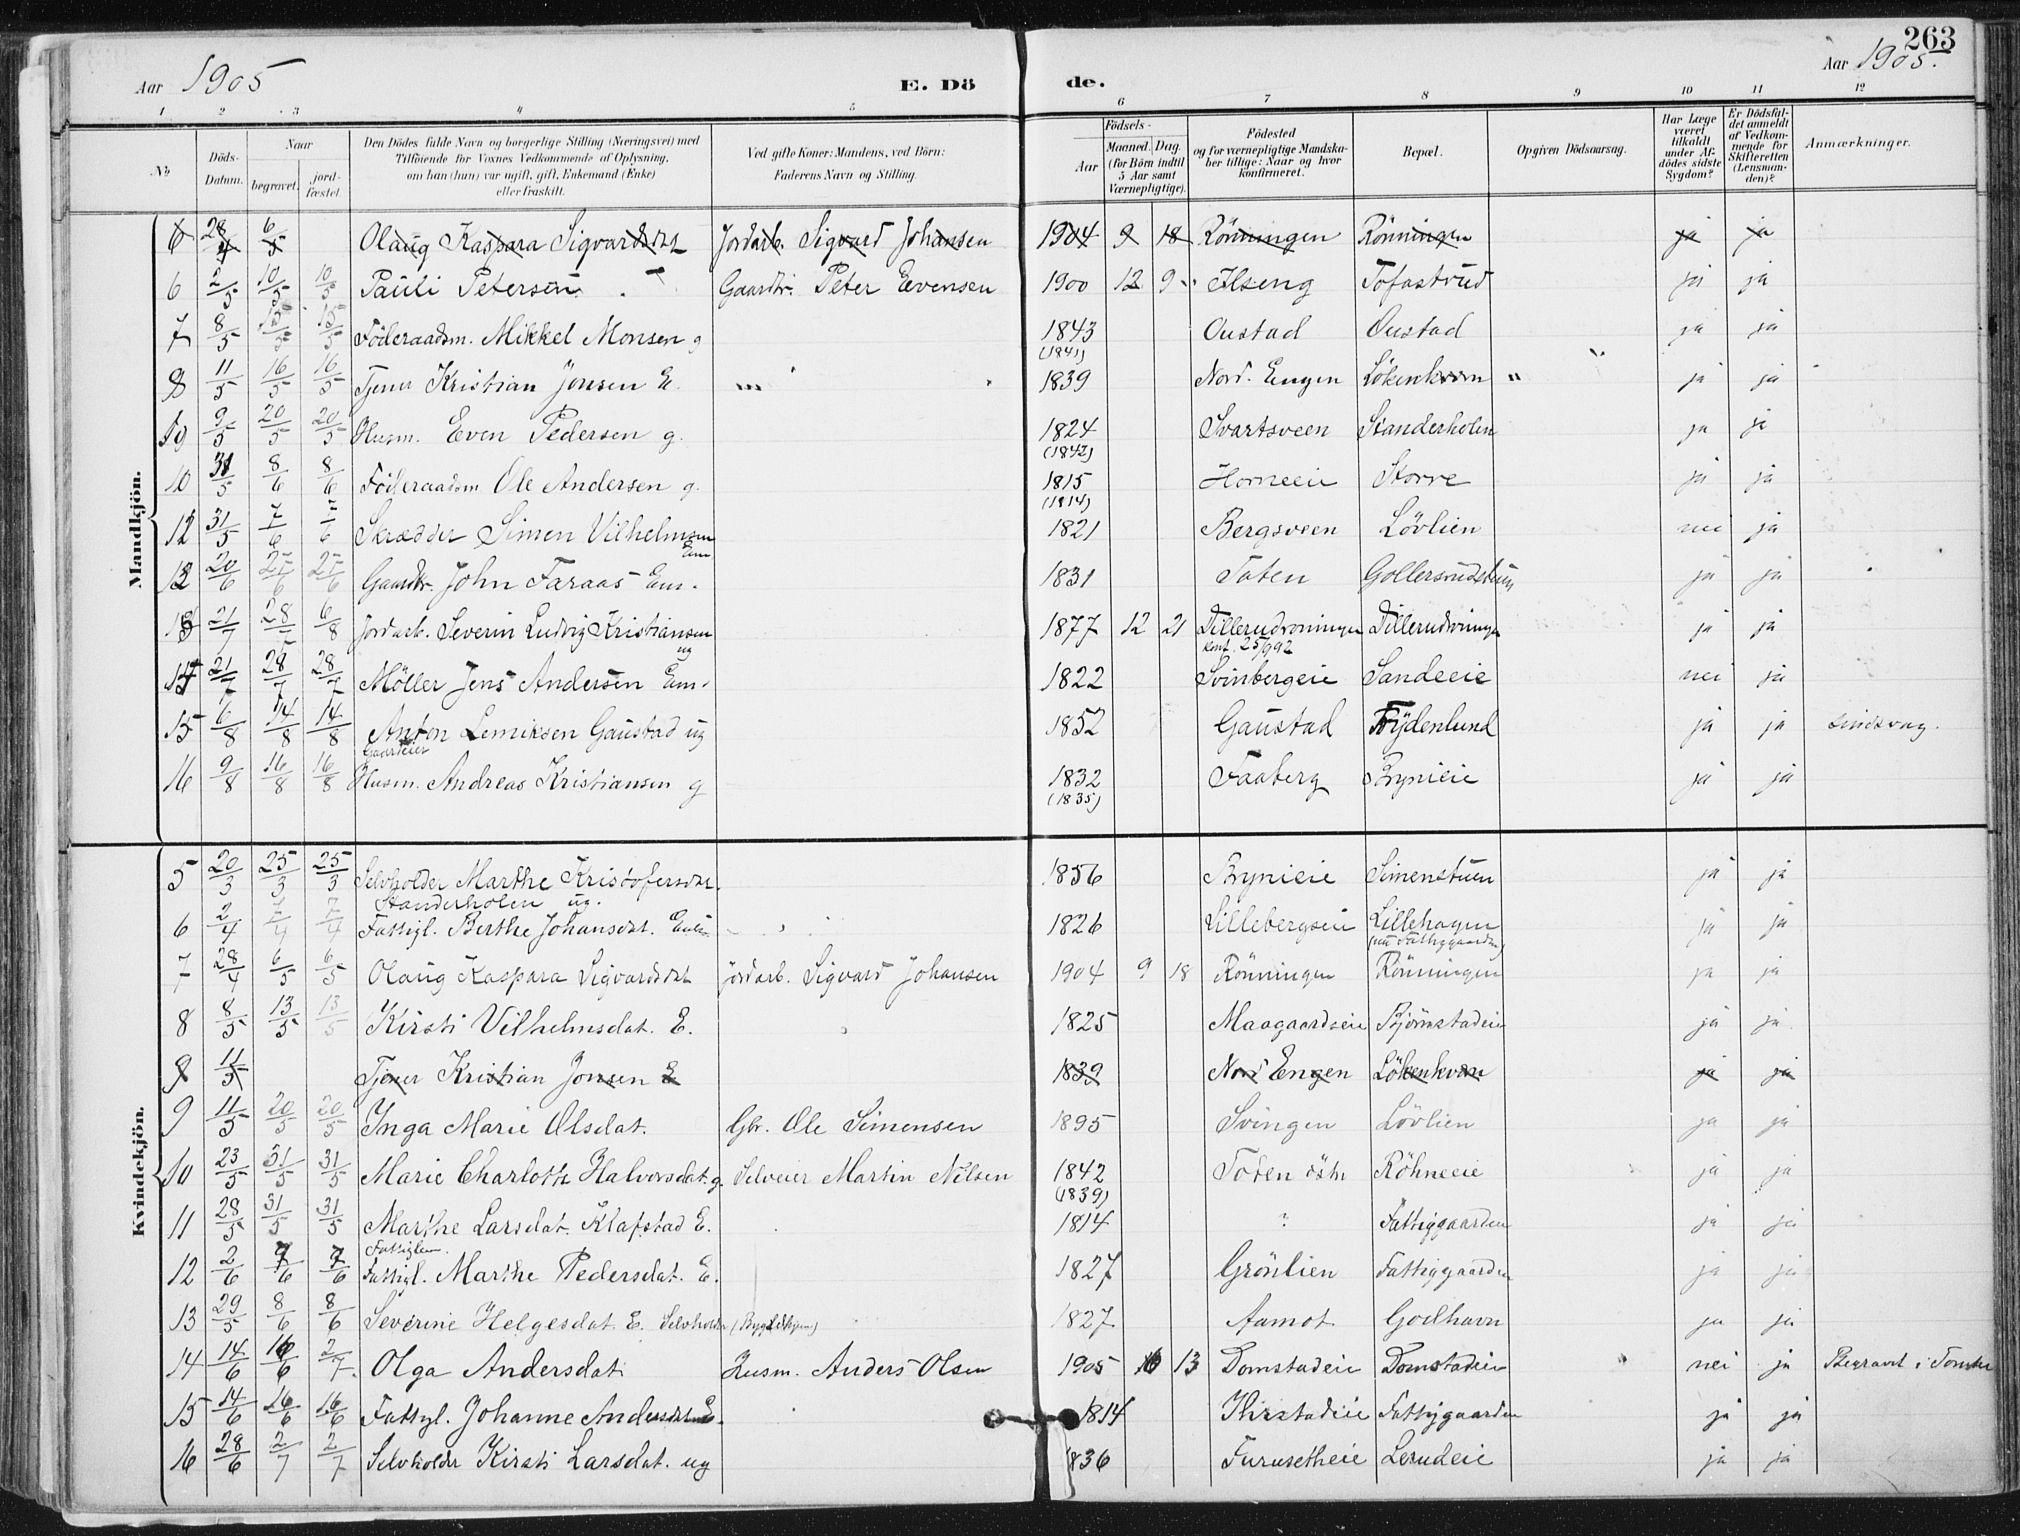 263
Aar 1905 E. Dö de. Aar 1905.
1 2 3 4 5 6 7 8 9 10 11 12
No Döds-Datum. Naar begravet. jord-fæstet. Den Dödes fulde Navn og borgerlige Stilling (Næringsvei) med Tilföiende for Voxnes Vedkommende af Oplysning, om han (hun) var ugift, gift, Enkemand (Enke) eller fraskilt. Ved gifte Koner: Mandens, ved Börn: Faderens Navn og Stilling. Födsels- Aar Maaned. Dag. (for Börn indtil 5 Aar samt Værnepligtige). Födested og for værnepligtige Mandskaber tillige: Naar og hvor konfirmeret. Bopæl. Opgiven Dödsaarsag. Har Læge været tilkaldt under Afdödes sidste Sygdom? Er Dödsfaldet anmeldt af Vedkommende for Skifteretten (Lensmanden)? Anmærkninger.
Mandkjön.
6 28/4 6/5 Olaug Kaspara Sigvardsdat Jordarb. Sigvard Johansen 1904 9 18 Rönningen Rönningen ja ja
6 2/5 10/5 10/5 Pauli Petersen Gaardbr. Peter Evensen 1900 12 9 Ilseng Tofastrud ja ja
7 8/5 15/5 15/5 Föderaadsm. Mikkel Monsen g 1843 (1841) Oustad Oustad ja ja
8 11/5 16/5 16/5 Tjener Kristian Jonsen E. 1839 Nord. Engen Lökenkvern " ja ja
9 9/5 20/5 20/5 Husm. Even Pedersen g. 1824 (1842) Svartsveen Standerholen ja ja
10 31/5 8/6 8/6 Föderaadsm Ole Andersen g. 1815 (1814) Horneeie Storre ja ja
12 31/5 7/6 7/6 Skrædder Simen Vilhelmsen Em 1821 Bergsveen Lövlien nei ja
13 20/6 25/6 25/6 Gaardbr. John Faraas Em. 1831 Toten Gollersrudstuen ja ja
21/7 28/7 6/8 Jordarb. Severin Ludvig Kristiansen ug 1877 12 21 Dillerudroningen konf. 25/9 92 ja ja
14 21/7 28/7 28/7 Möller Jens Andersen Em. 1822 Svinbergeie Sandeeie nei ja
15 6/8 14/8 14/8 Anton Lemiksen Gaustad ug Gaardeier 1852 Gaustad Frydenlund ja ja sindssvag.
16 9/8 16/8 16/8 Husm. Andreas Kristiansen g 1832 (1835) Faaberg Brynieie ja ja
Kvindekjön.
5 20/3 25/3 25/3 Selvholder Marthe Kristofersdat. Standerholen ug. 1856 Brynieie Simenstuen ja ja
6 2/4 7/4 7/4 Fattigl. Berthe Johansdat. Enke 1826 Lillebergseie Lillehagen (nu Fattiggaarden) ja ja
7 28/4 6/5 6/5 Olaug Kaspara Sigvardsdat Jordarb. Sigvard Johansen 1904 9 18 Rönningen Rönningen ja ja
8 8/5 13/5 13/5 Kirsti Vilhelmsdat. E. 1825 Maagaardseie Björnstadeie ja ja
9 11/5 Tjener Kristian Jonsen E 1839 Nord Engen Lökenkvern ja ja
9 11/5 20/5 20/5 Inga Marie Olsdat. Gbr. Ole Simensen 1895 Svingen Lövlien ja ja
10 23/5 31/5 31/5 Marie Charlotte Halvorsdat. g. Selveier Martin Nilsen 1842 (1839) Toten östr Röhneeie ja ja
11 28/5 31/5 31/5 Marthe Larsdat. Klafstad E. Fattiglem. 1814 ? Fattiggaarden ja ja
12 2/6 7/6 7/6 Fattigl. Marthe Pedersdat. E. 1827 Grönlien Fattiggaarden ja ja
13 29/5 8/6 8/6 Severine Helgesdat. E. Selvholder 1827 Aamot Godhavn ja ja
14 14/6 16/6 2/7. Olga Andersdat Husm. Anders Olsen 1905 6 13 Domstadeie Domstadeie nei ja Begravet i
15 14/6 16/6 16/6 Fattigl. Johanne Andersdat E. 1814 Hirstadeie Fattiggaarden ja ja
16 28/6 2/7 2/7 Selvholder Kirsti Larsdat. ug 1836 Furusetheie Lerudeie ja ja